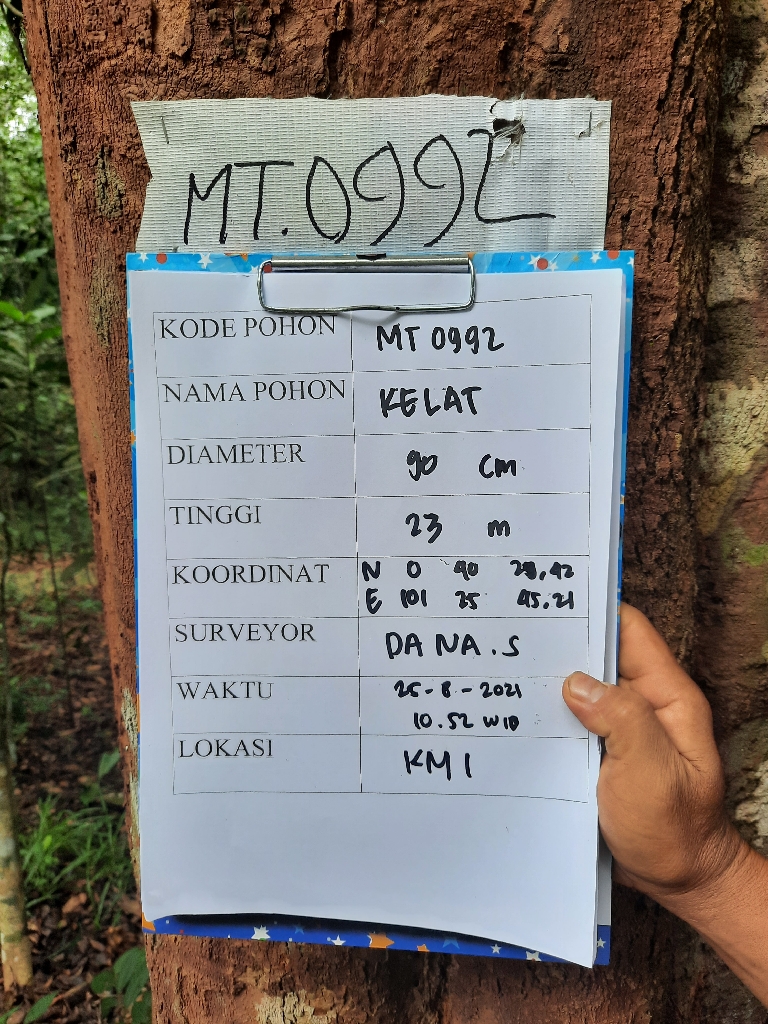 MT.0992
KODE POHON MT 0992
NAMA POHON KELAT
DIAMETER 90 cm
TINGGI 23 m
KOORDINAT N 0 40 28,42
E 101 25 45.21
SURVEYOR DANA.S
WAKTU 25-8-2021
10.52 WIB
LOKASI KM1